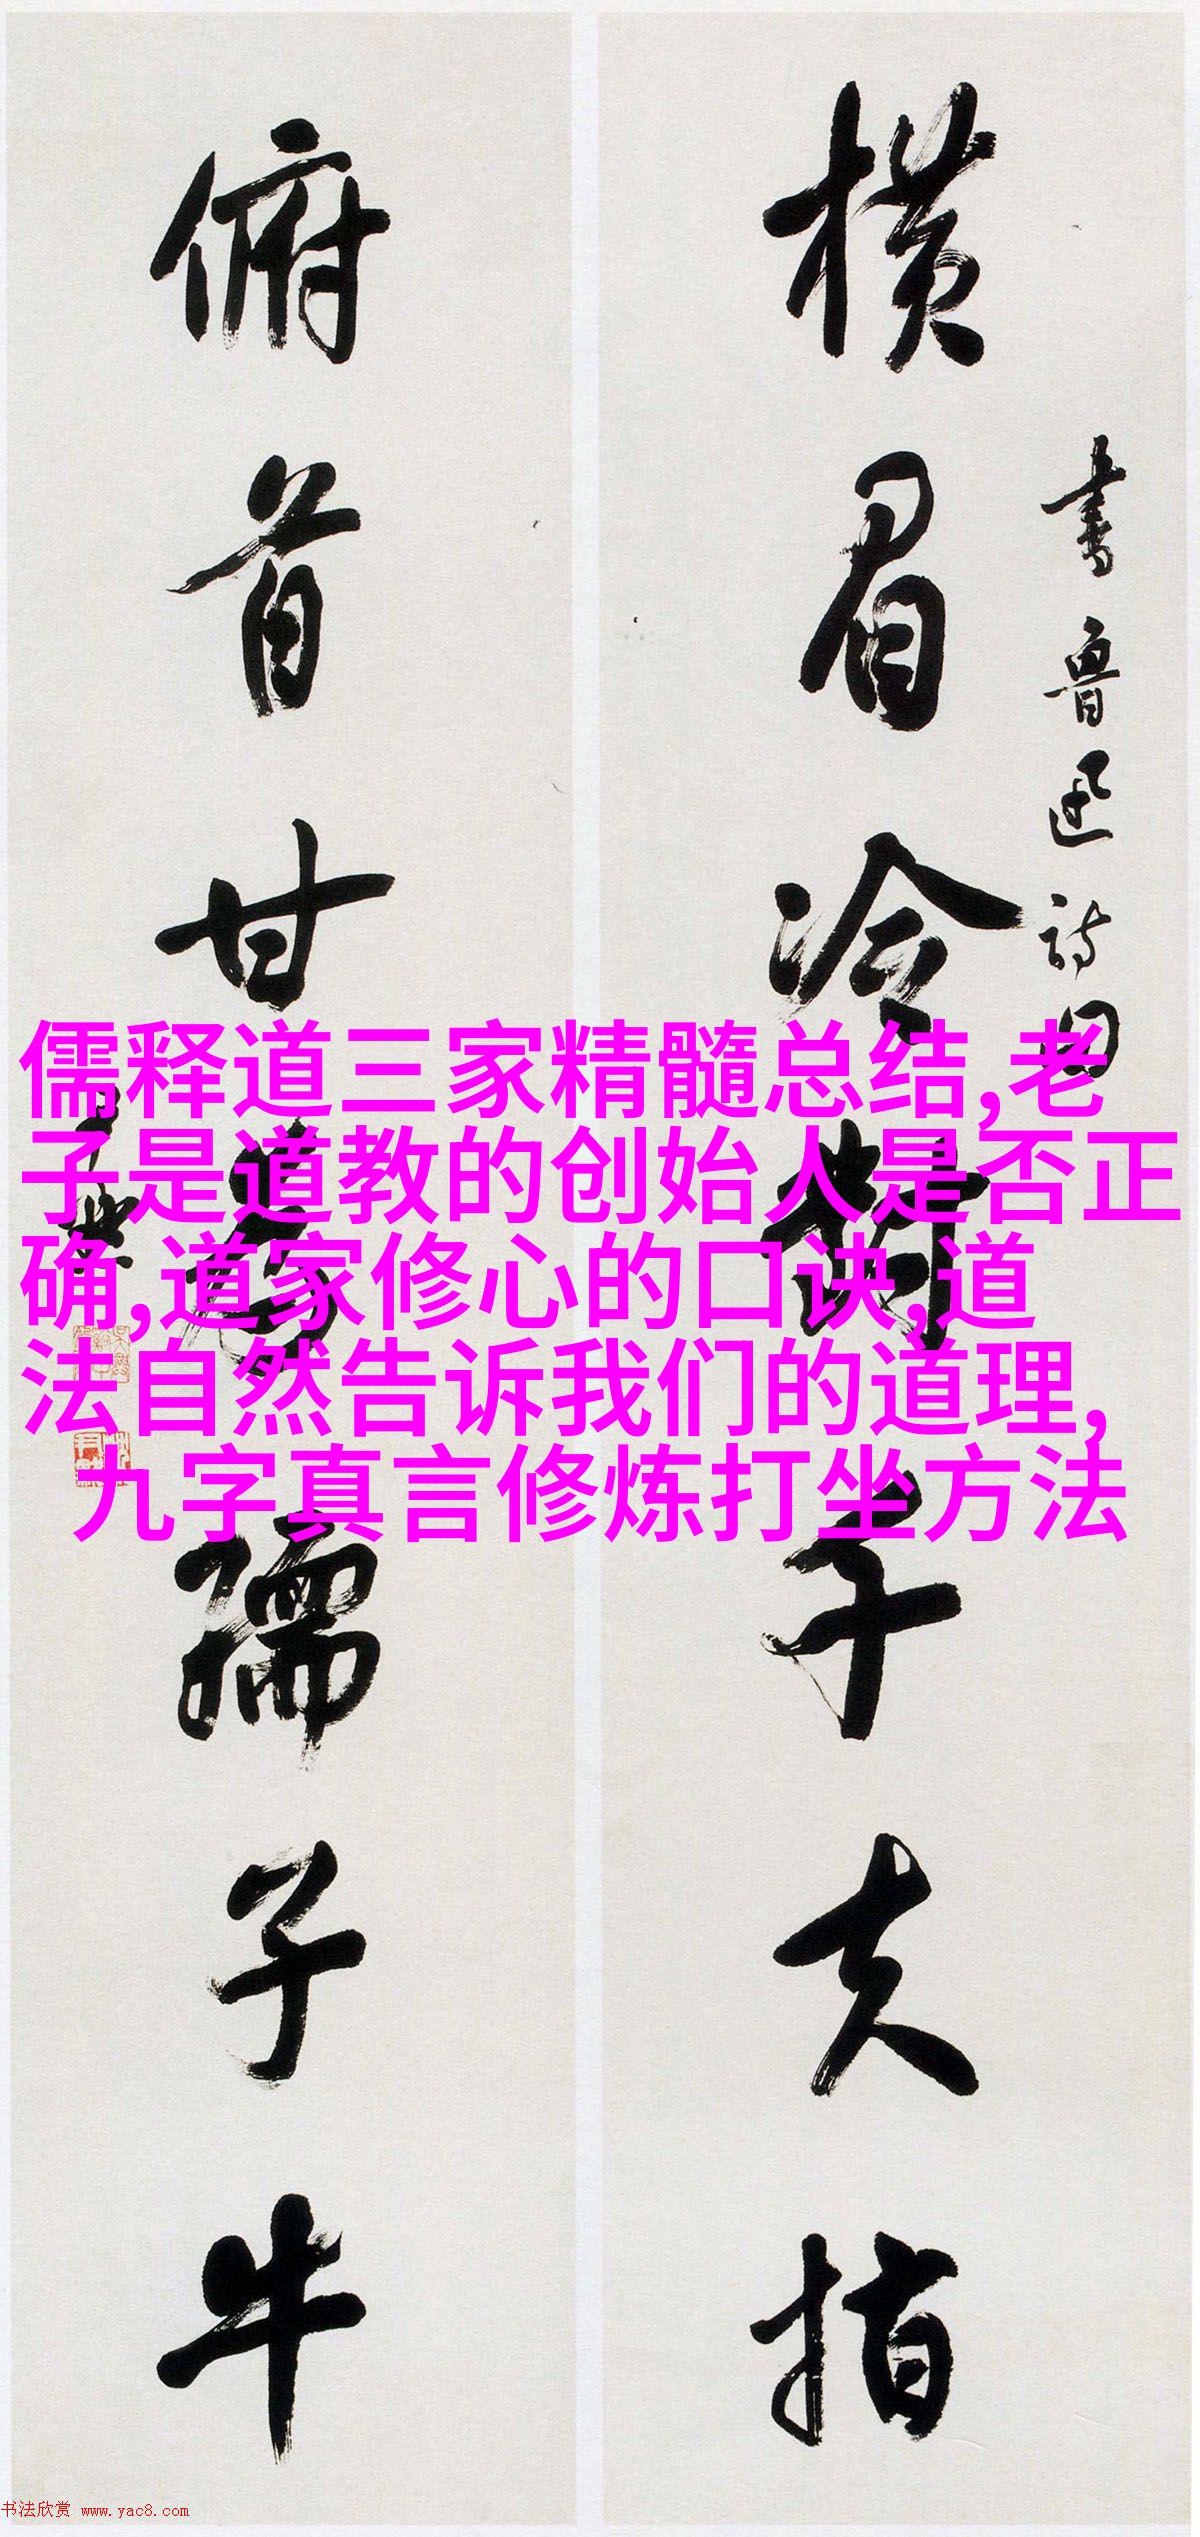 横眉冷对千夫指
书鲁迅诗句
俯首甘为孺子牛
儒释道三家精髓总结,老
子是道教的创始人是否正
确,道家修心的口诀,道
法自然告诉我们的道理,
九字真言修炼打坐方法
书法欣赏 www.yac8.com